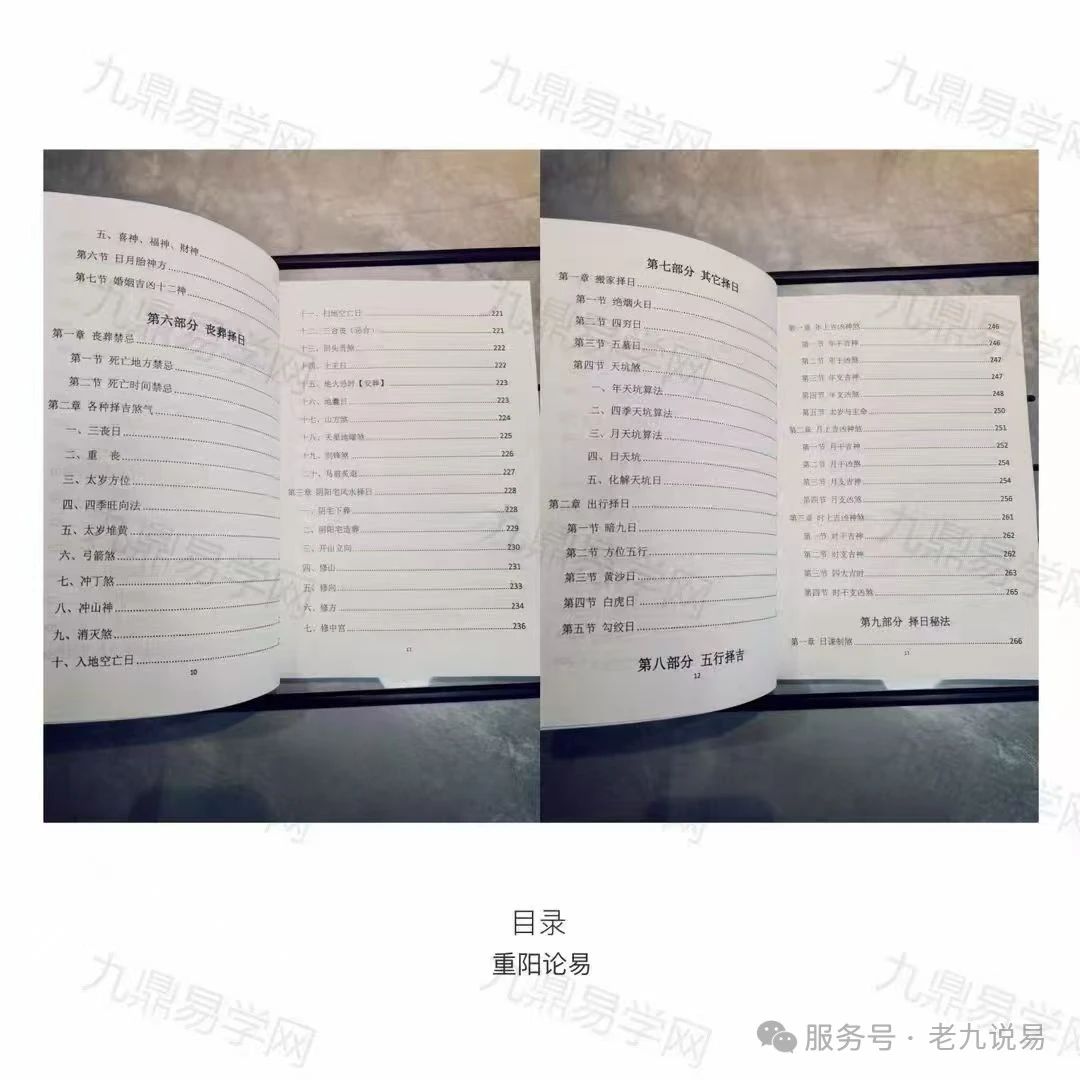 五、喜神、福神、财神
第六节 日月胎神方
第七节 婚姻吉凶十二神
第六部分 丧葬择日
第一章 丧葬禁忌
第一节 死亡地方禁忌
第二节 死亡时间禁忌
第二章 各种择吉煞气
一、三丧日
二、重 丧
三、太岁方位
四、四季旺向法
五、太岁堆黄
六、弓箭煞
七、冲丁煞
八、冲山神
九、消灭煞
十、入地空亡日
10
十一、扫地空亡日 221
十二、三合丧（法合） 221
十三、回头贡煞 222
十四、土王日 222
十五、地火忌时【安葬】 223
十六、地囊日 223
十七、山方煞 224
十八、天星地曜煞 225
十九、剑锋煞 226
二十、马前炙退 227
第三章 阴阳宅风水择日 228
一、阴宅下葬 228
二、阴阳宅造葬 229
三、开山立向 230
四、修山 231
五、修向 233
六、修方 234
七、修中宫 236
11
第七部分 其它择日
第一章 搬家择日
第一节 绝烟火日
第二节 四穷日
第三节 五墓日
第四节 天坑煞
一、年天坑算法
二、四季天坑算法
三、月天坑算法
四、日天坑
五、化解天坑日
第二章 出行择日
第一节 暗九日
第二节 方位五行
第三节 黄沙日
第四节 白虎日
第五节 勾绞日
第八部分 五行择吉
12
第一章 年上吉凶神煞 246
第一节 年干吉神 246
第二节 年干凶煞 247
第三节 年支吉神 247
第四节 年支凶煞 248
第五节 太岁与主命 250
第二章 月上吉凶神煞 251
第一节 月干吉神 252
第二节 月干凶煞 254
第三节 月支吉神 254
第四节 月支凶煞 256
第三章 时上吉凶神煞 261
第一节 时干吉神 262
第二节 时支吉神 262
第三节 四大吉时 263
第四节 时干支凶煞 265
第九部分 择日秘法
第一章 日课制煞 266
目录
重阳论易
服务号 · 老九说易
九鼎易学网